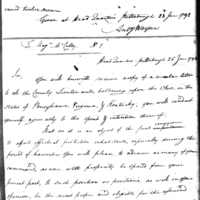 Given at Head Quarters Pittsburgh 28 June 1792
Anty Wayne
To Majr McCully No 1
Head Quarters Pittsburgh 25 June 1792
Sir,
You will herewith receive copy of a circular letter
to all the County Lieutenants, bordering upon the Ohio, in the
States of Pennsylvania Virginia & Kentucky, you will conduct
yourself agreeably to the spirit & intention thereof.
But as it is an object of the first importance
to afford effectual protection to the inhabitants, especially during the
period of harvest. You will please to advance as many of your
command, as can with propriety be spared from your
present post, to such position or positions, as will in your
opinion, be the most proper and eligible for the aforesaid